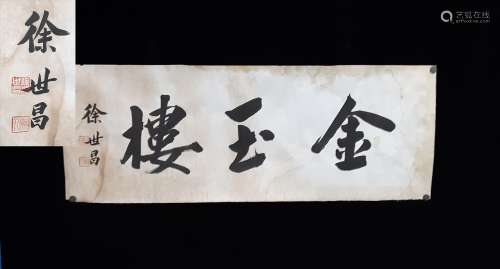 金玉樓
徐世昌
徐世昌
艺狐在线